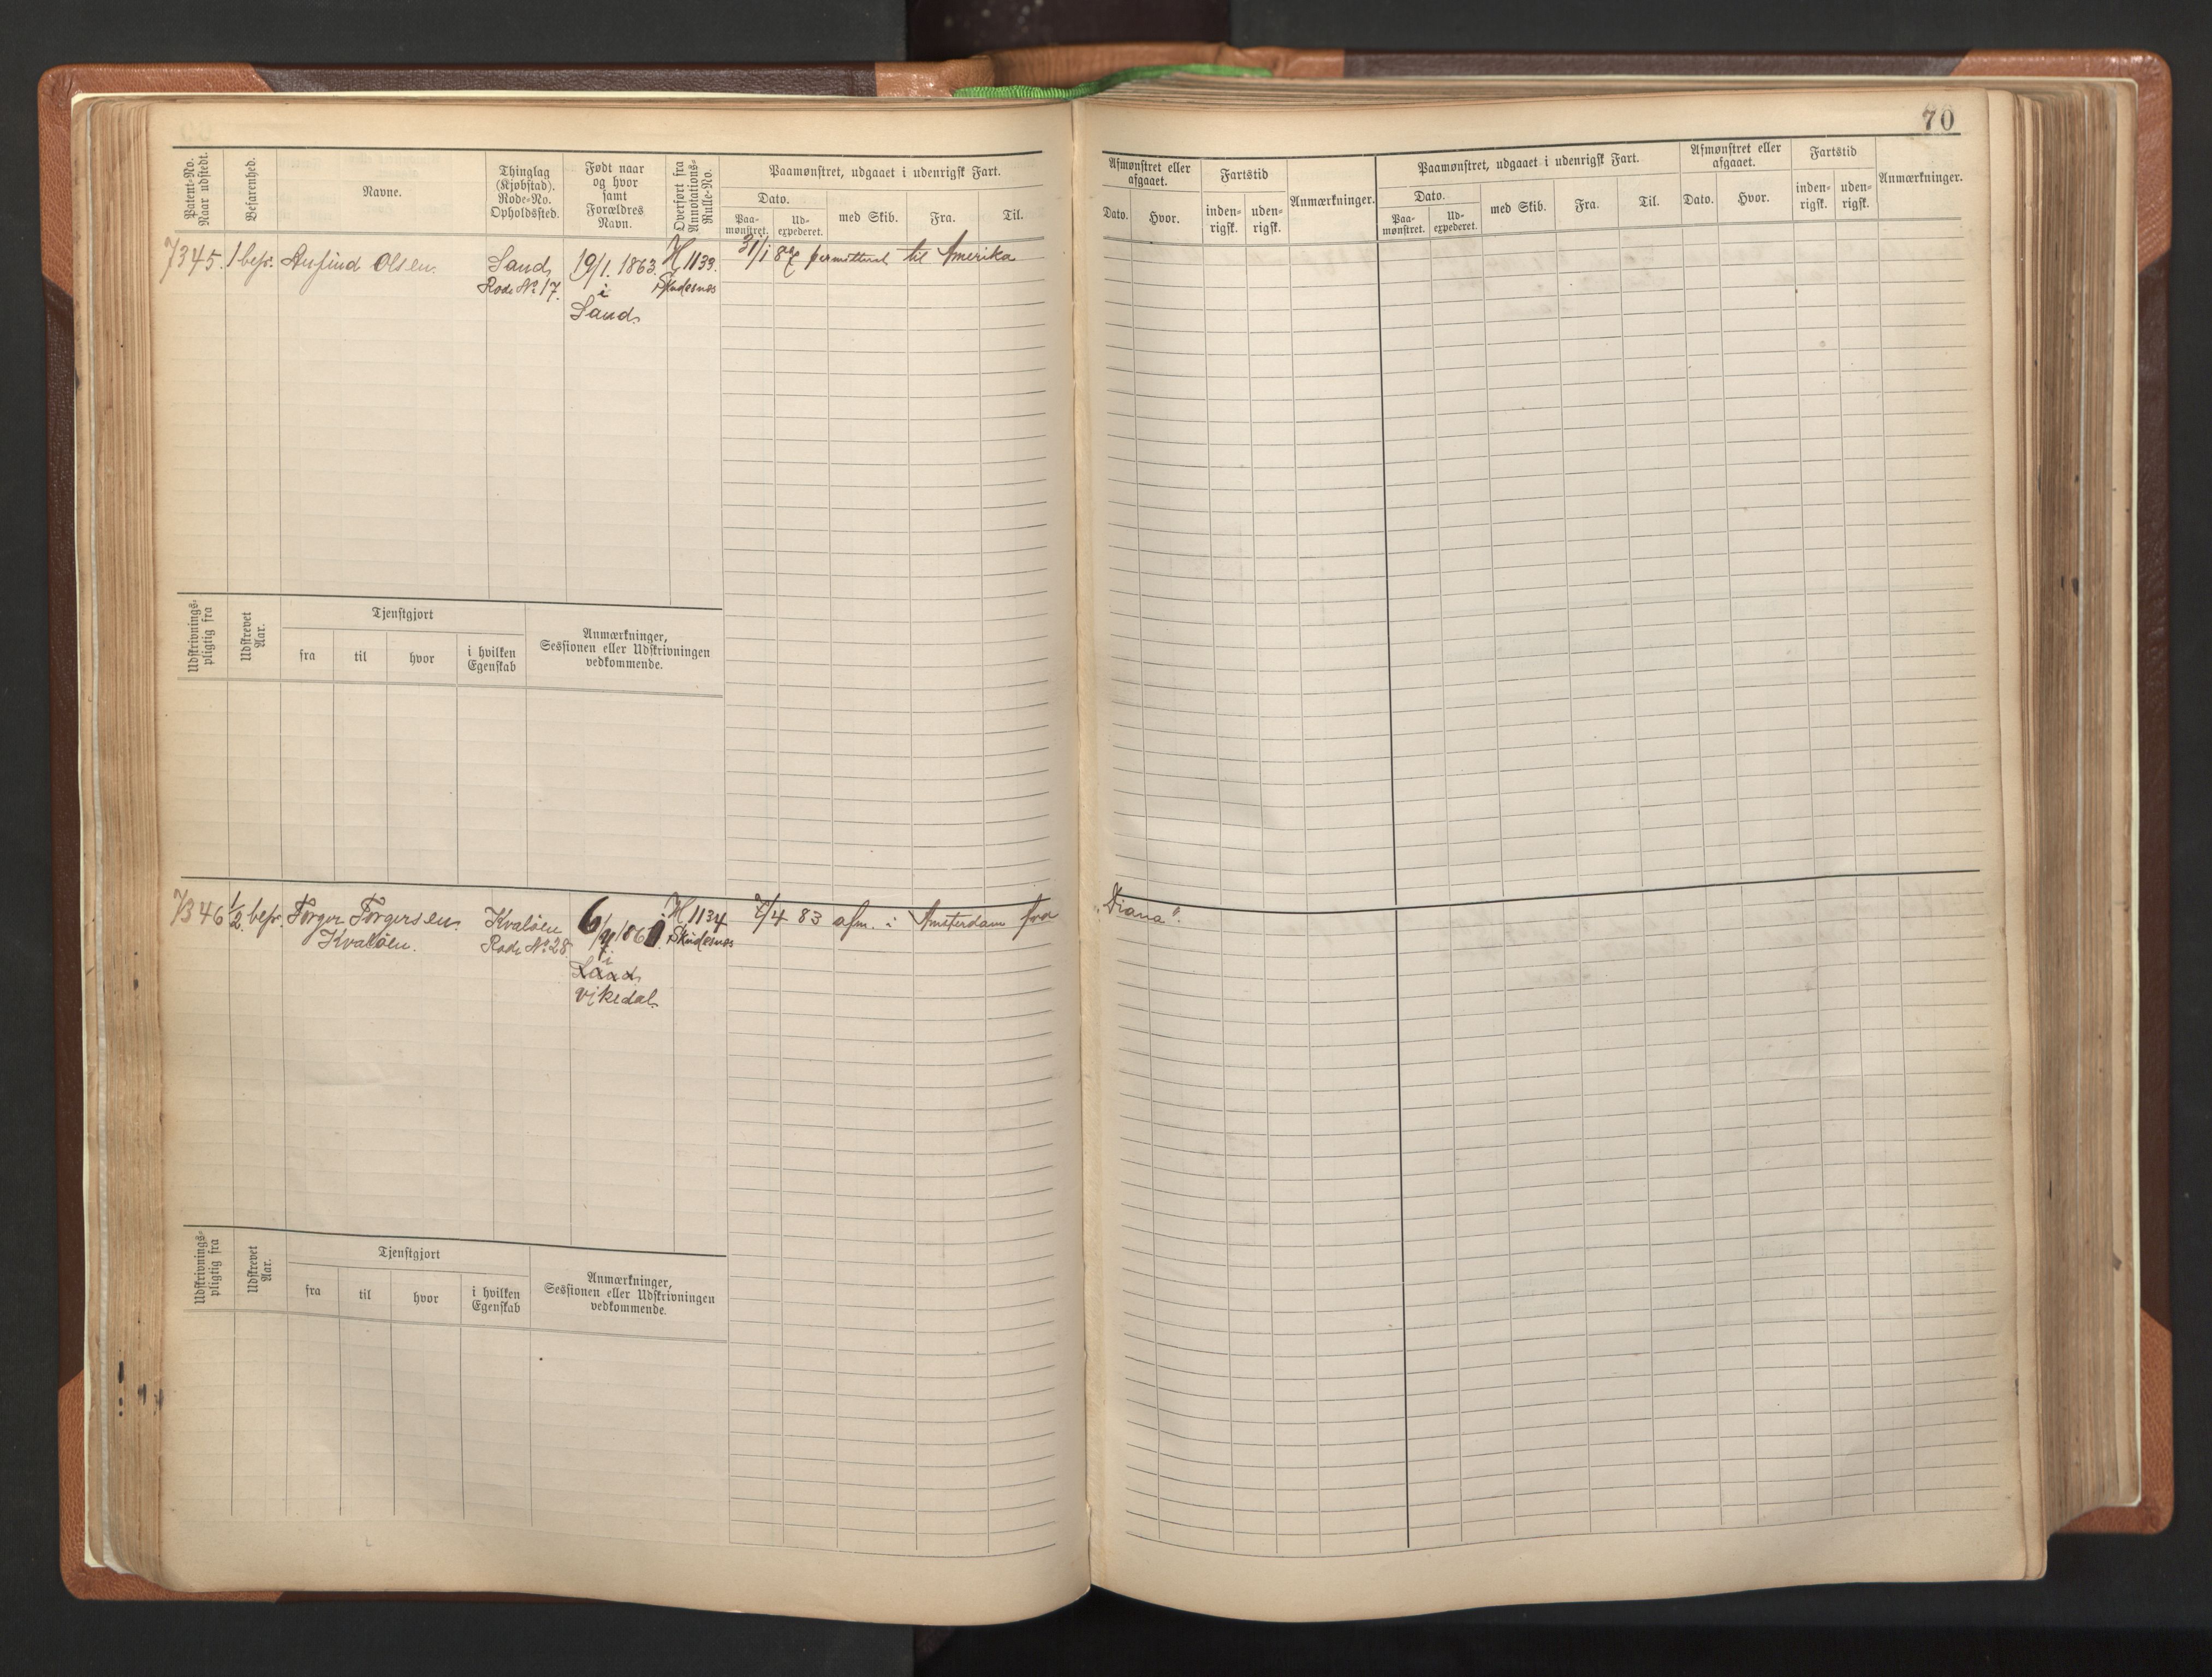 70
Patent-No.
Naar udstedt.
Befarenhed.
Navne.
Thinglag
(Kjøbstad).
Rode-No.
Opholdssted.
Født naar
og hvor
samt
Forældres
Navn.
Overført fra
Annotations-
Rulle-No.
Paamønstret, udgaaet i udenrigsk Fart.
Dato.
Paa-
mønstret.
Ud-
expederet.
med Skib.
Fra.
Til.
Afmønstret eller
afgaaet.
Dato.
Hvor.
Fartstid
inden-
rigsk.
uden-
rigsk.
Anmærkninger.
Paamønstret, udgaaet i udenrigsk Fart.
Dato.
Paa-
mønstret.
Ud-
expederet.
med Skib.
Fra.
Til.
Afmønstret eller
afgaaet.
Dato.
Hvor.
Fartstid
inden-
rigsk.
uden-
rigsk.
Anmærkninger.
7345. 1 befr. Anfind Olsen. Sand 19/1. 1863. H 1133. 31/1 87 permitteret til Amerika
Rode No 17. i Skudesnes
Sand
Udskrivnings-
pligtig fra
Udskrevet
Aar.
Tjenstgjort
fra
til
hvor
i hvilken
Egenskab
Anmærkninger,
Sessionen eller Udskrivningen
vedkommende.
7346 1/2 befr. Torger Torgersen Kvaløen 6/7 186 H 1134 /4 83 afm. i Amsterdam fra „Diana“.
Kvaløen. Rode No 28. i Skudesnes
Sand
Vikedal
Udskrivnings-
pligtig fra
Udskrevet
Aar.
Tjenstgjort
fra
til
hvor
i hvilken
Egenskab
Anmærkninger,
Sessionen eller Udskrivningen
vedkommende.